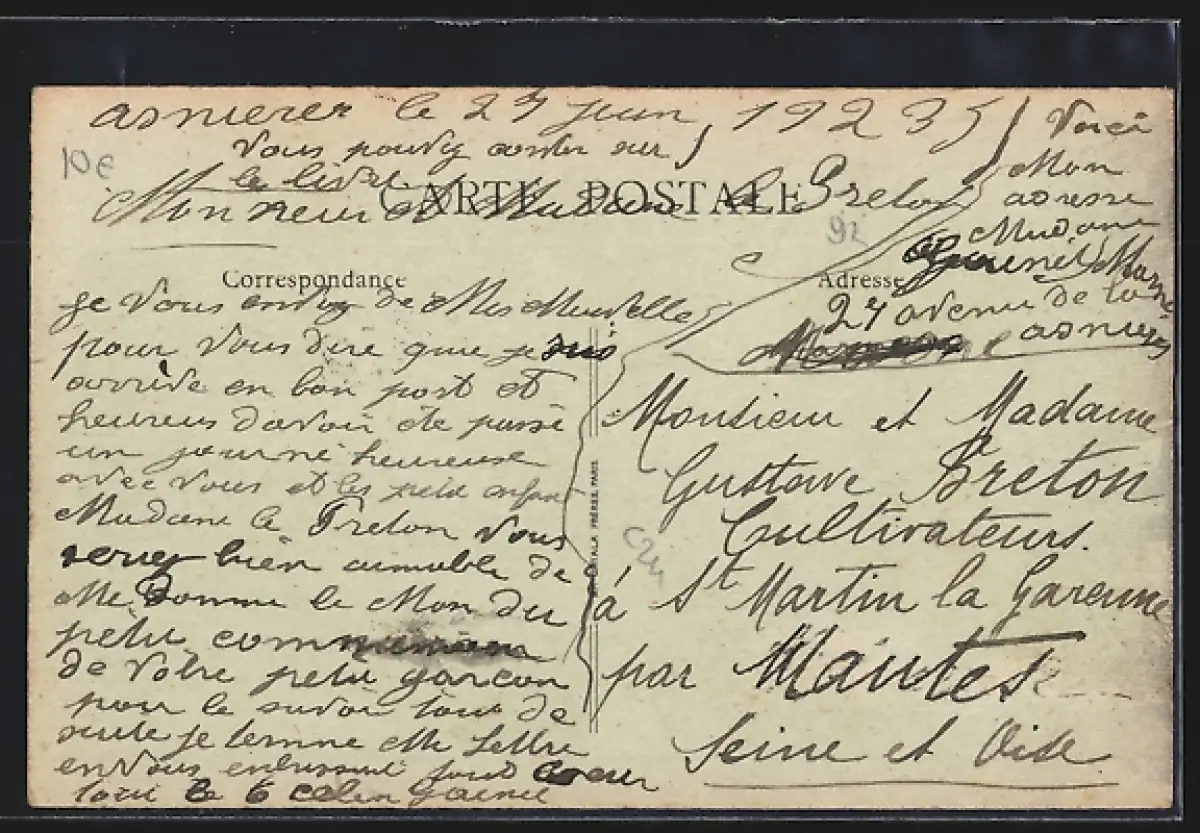 asnierer le 27 juin 1923
Vous pouvez conter sur
le livre
10€
Monsieur et Madame le Breton
CARTE POSTALE
92
Voici
Mon
adresse
Madame
Gournel
27 avenu de la Marne
asnieres
Correspondance
Adresse
Je vous envoy de Mes Nuvelle
pour vous dire que je suis
arrivée en bon port et
heureus d'avoir éte passé
un journé heureuse
avec vous et les petit enfant
Madame le Breton vous
serez bien aimable de
Me donne le Mon du
petit
de votre petit garcon
pour le savoir tout de
suite je termine Me lettre
en vous enbrassant
Monsieur et Madame
Gustave Breton
Cultivateurs.
à St Martin la Garenne
par Mantes
Seine et Oise
FRÈRES PARIS
C24